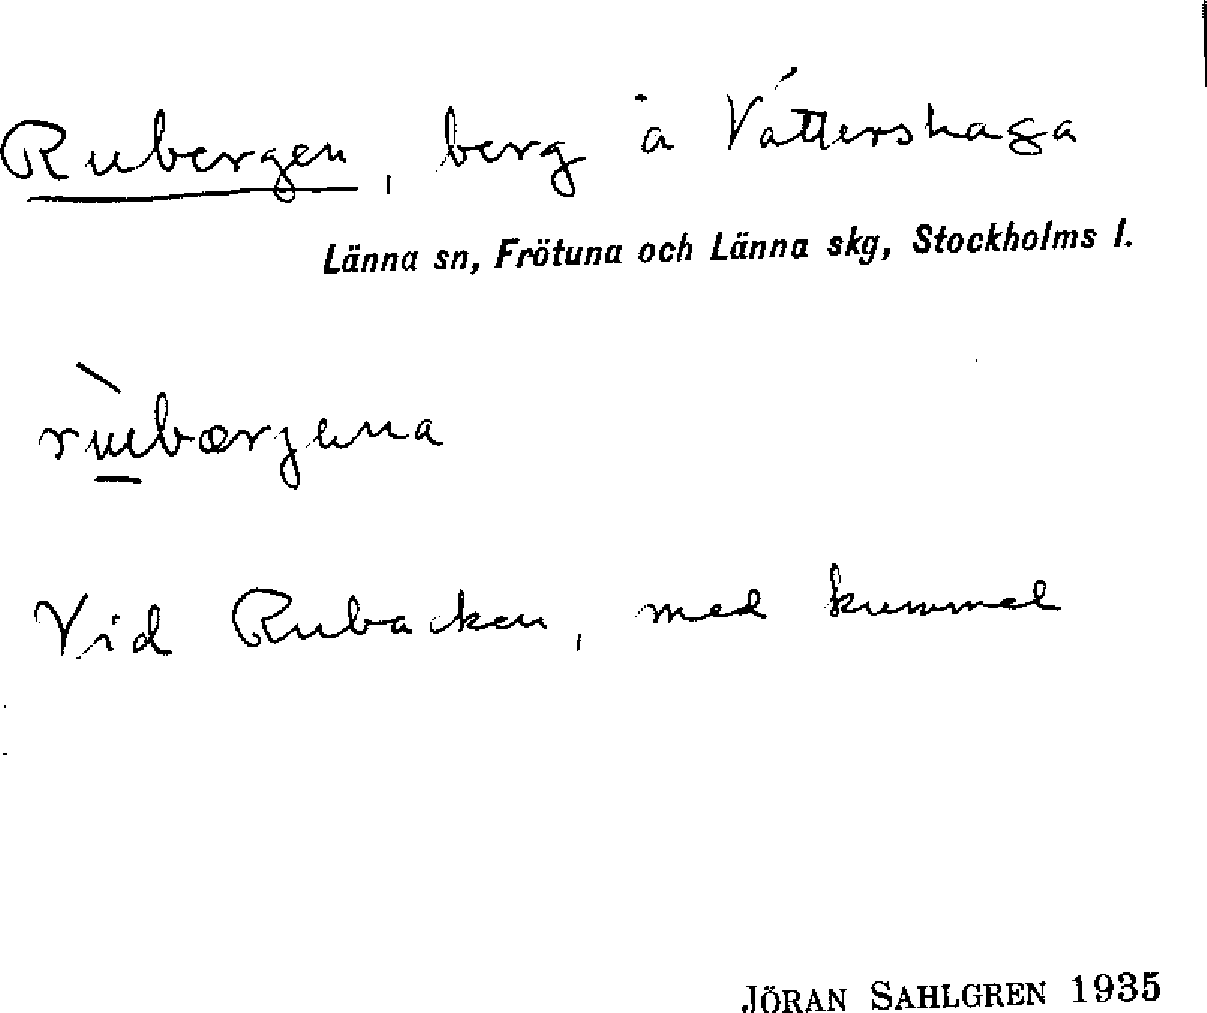 Rubergen, berg å Vättershaga
Länna sn, Frötuna och Länna skg, Stockholms l.
Vid Rubacken, med kummel
JÖRAN SAHLGREN 1935